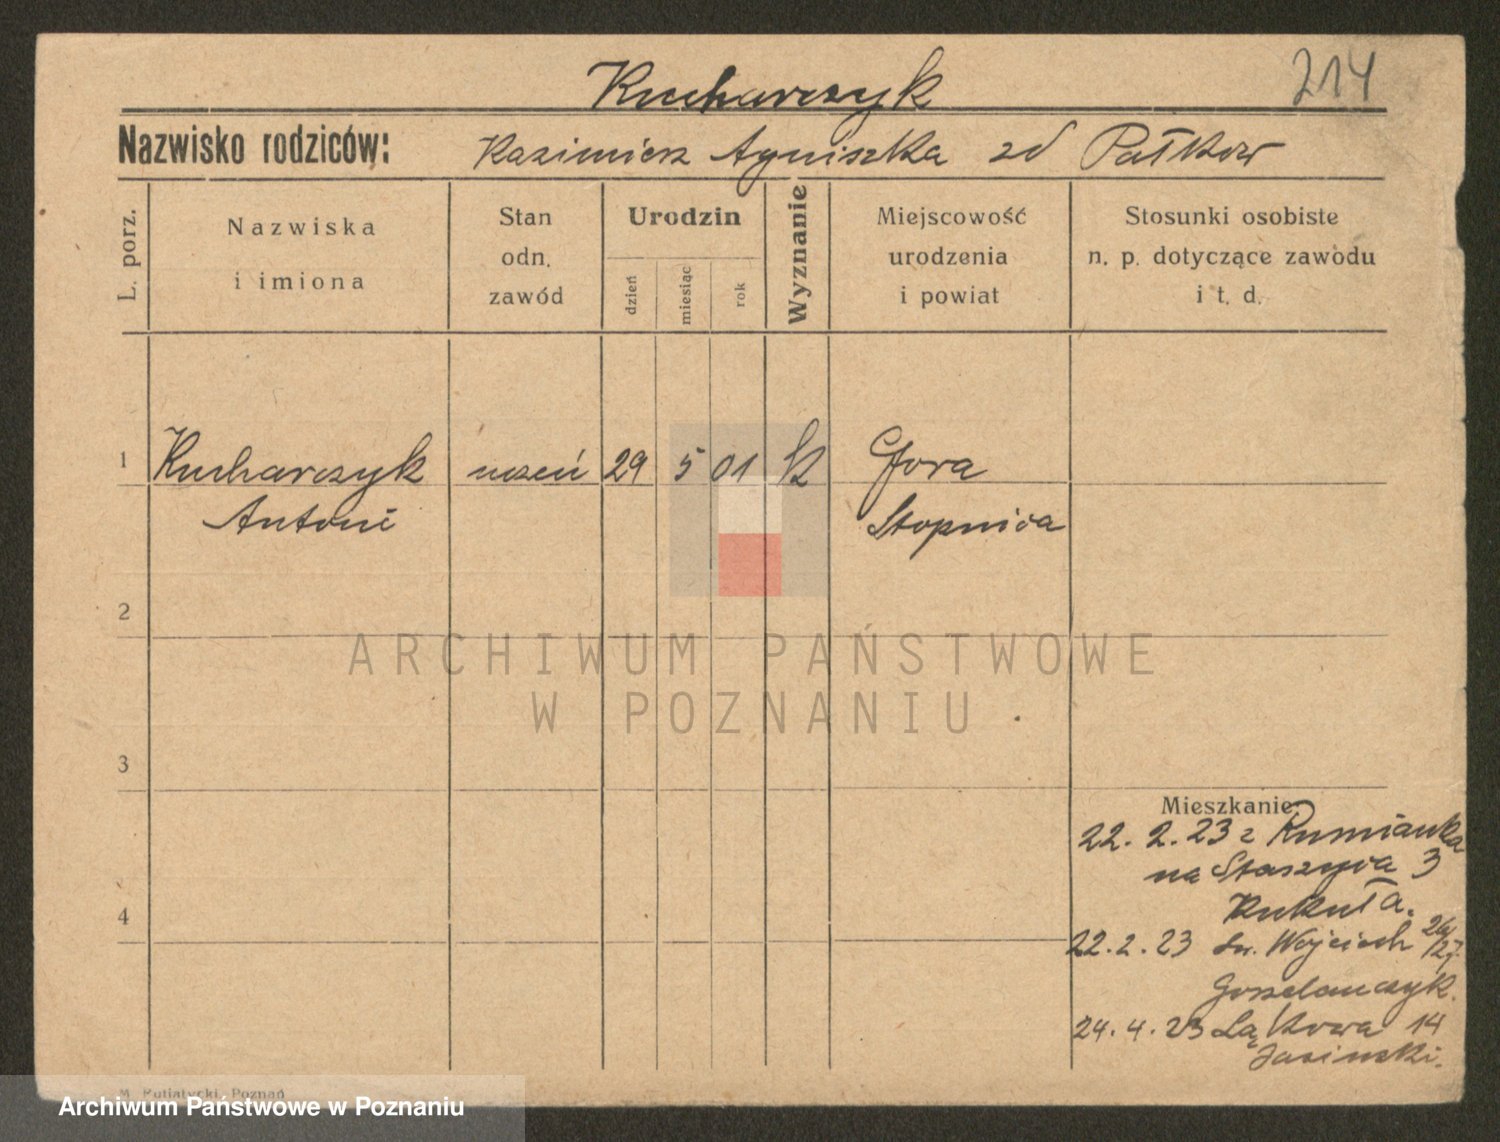 Kucharczyk
214
Nazwisko rodziców: Kazimierz Agniszka zd Pałków
L. porz.
Nazwiska
i imiona
Stan
odn.
zawód
Urodzin
dzień
miesiąc
rok
Wyznanie
Miejscowość
urodzenia
i powiat
Stosunki osobiste
n. p. dotyczące zawodu
i t. d.
1 Kucharczyk uczeń 29 5 01 Gora
Antoni Stopnica
2
ARCHIWUM PAŃSTWOWE
W POZNANIU
3
Mieszkanie:
22. 2. 23 z Rumianka
na Staszyca 3
Kukuła.
4
22. 2. 23 Św. Wojciech 26/27.
24. 4. 23 Łąkowa 14
Jasinski.
M. Putiatycki, Poznań
Archiwum Państwowe w Poznaniu